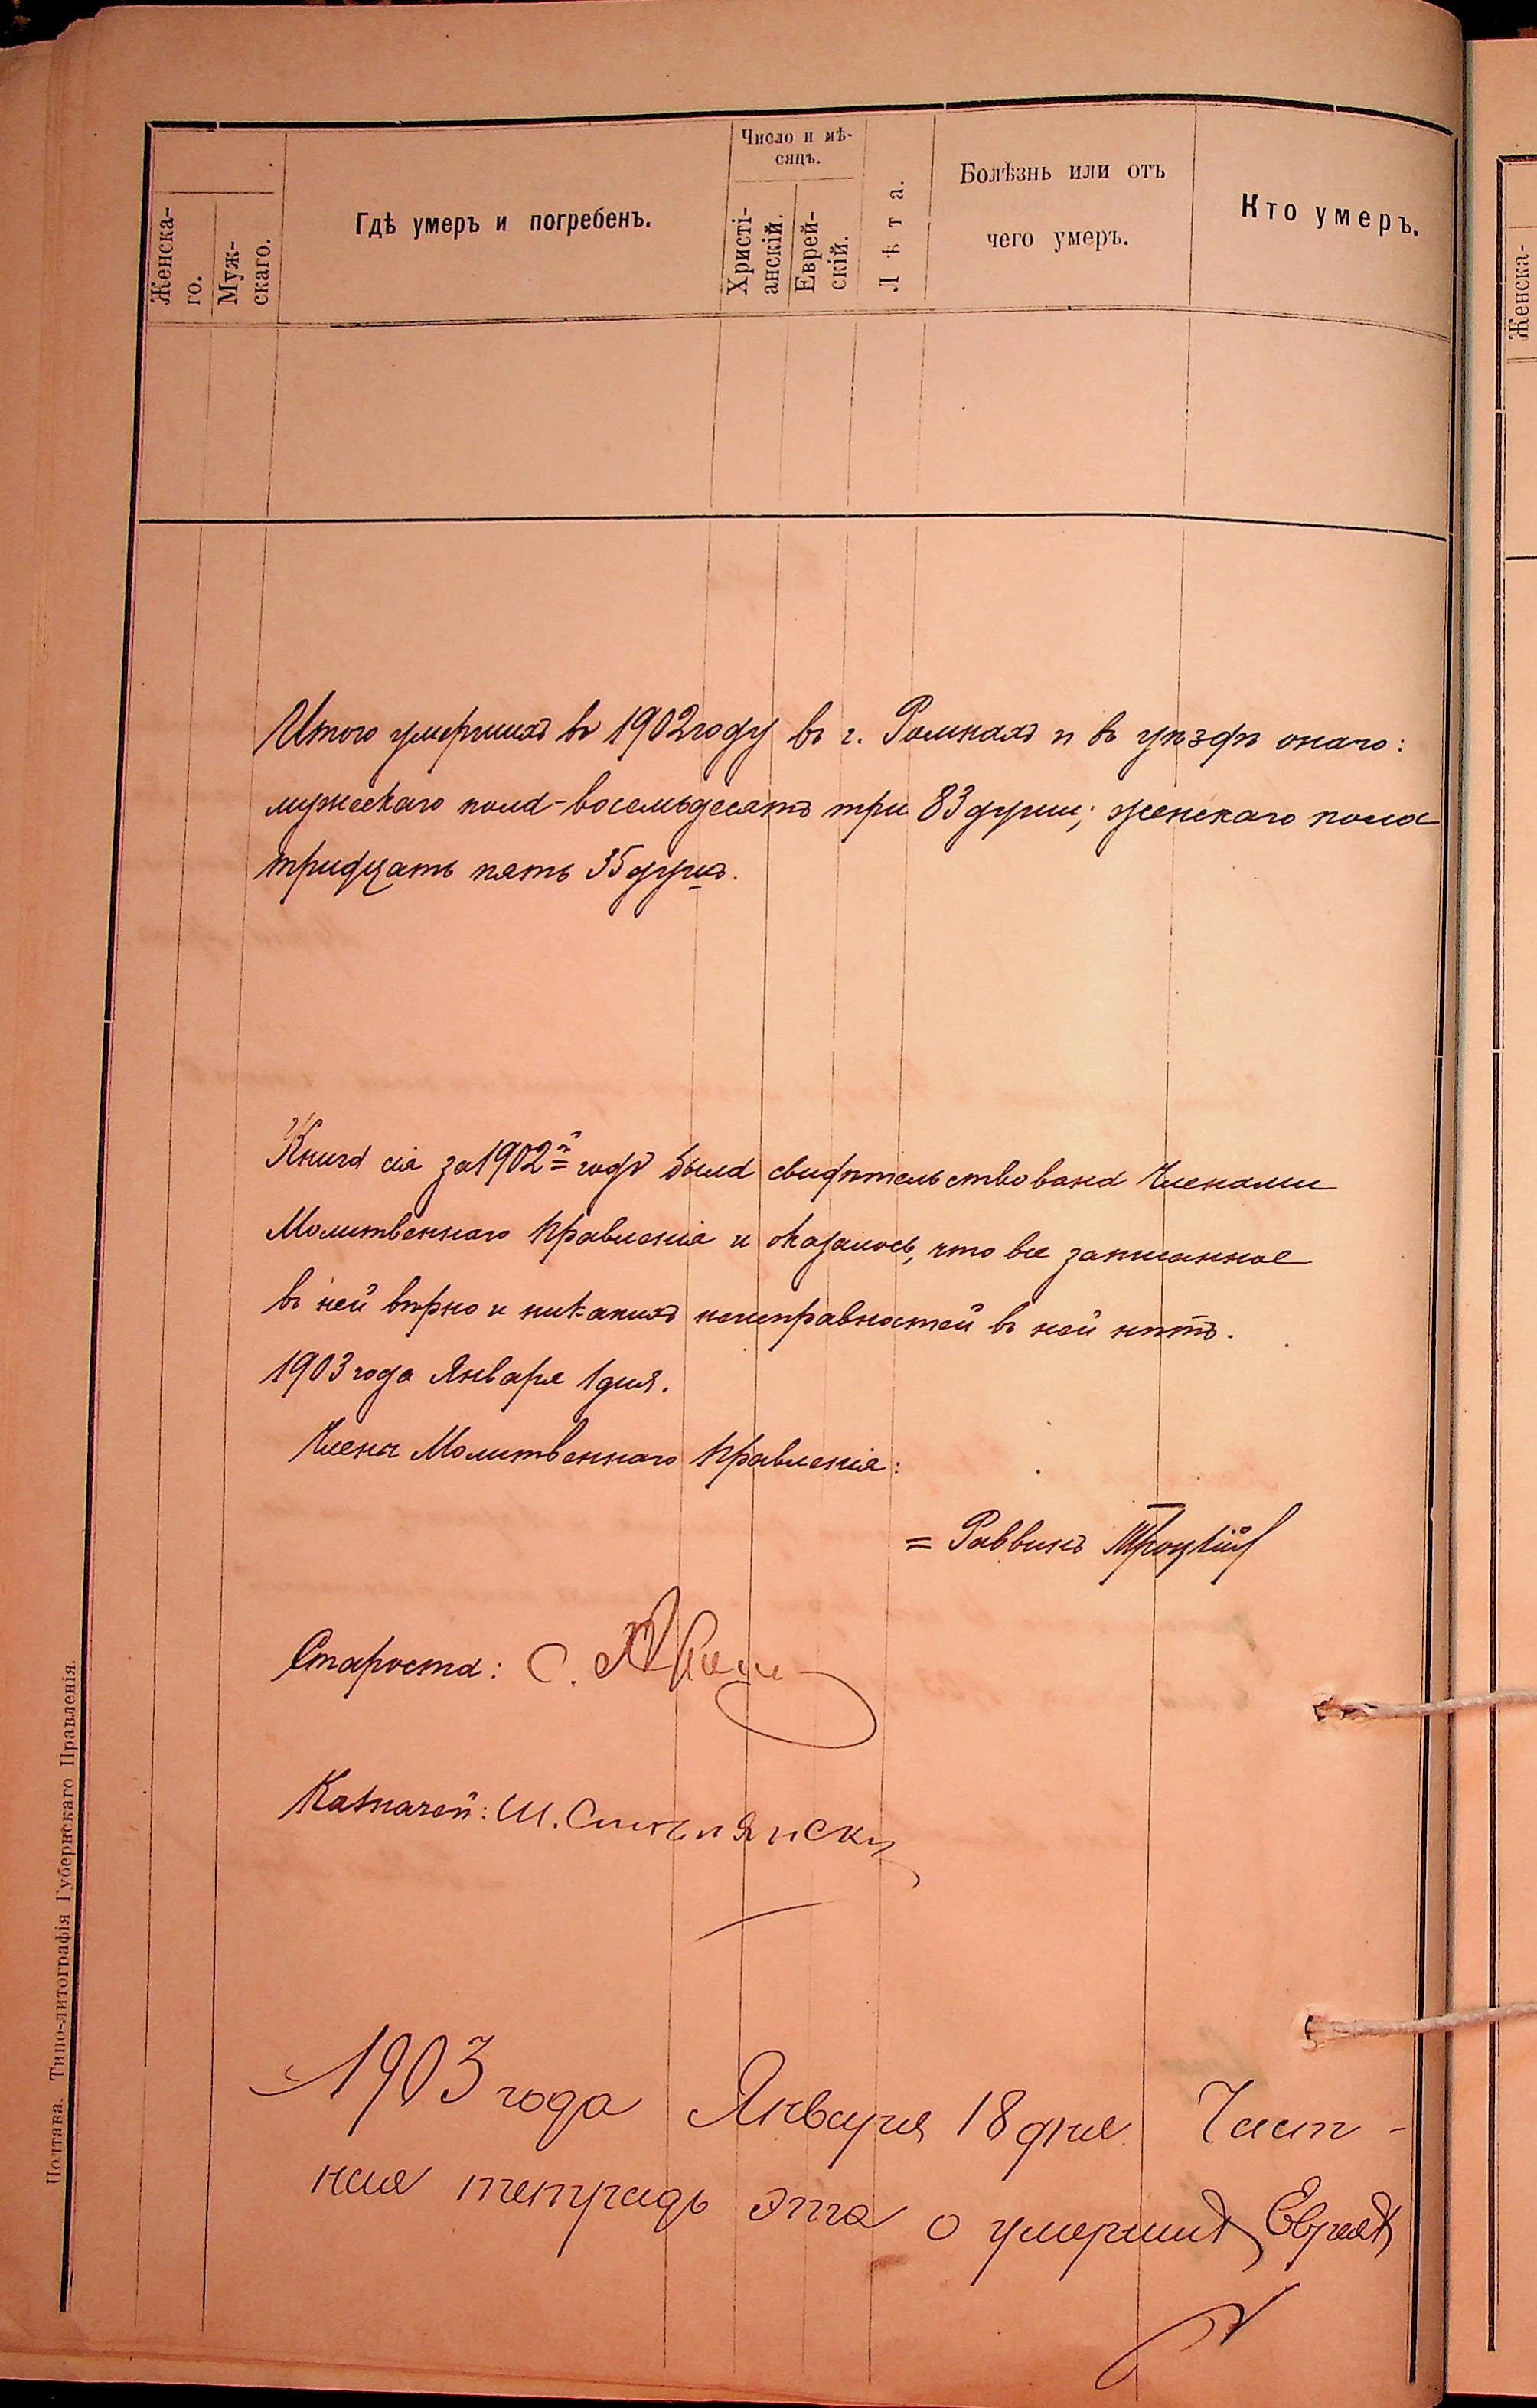 Женска-
го.
Муж-
скаго.
Гдѣ умеръ и погребенъ.
Число и мѣ-
сяцъ.
Христі-
анскій.
Еврей-
скій.
Лѣта.
Болѣзнь или отъ
чего умеръ.
Кто умеръ.
Итого умершихъ въ 1902 году въ г. Ромнахъ и въ уѣздѣ онаго:
мужескаго пола - восемьдесятъ три 83 души; женскаго пола
тридцать пять 35 душъ.
Книга сія за 1902й годъ была свидѣтельствована Членами
Молитвеннаго Правленія и оказалось, что все записанное
въ ней вѣрно и никакихъ неисправностей въ ней нѣтъ.
1903 года Января 1 дня.
Члены Молитвеннаго Правленія:
= Раввинъ Троцкій
Староста: С.
Казначей: Ш. Смолянски
1903 года Января 18 дня Част-
ная тетрадь эта о умершихъ Евреяхъ
Полтава. Типо-литографія Губернскаго Правленія.
Женска-